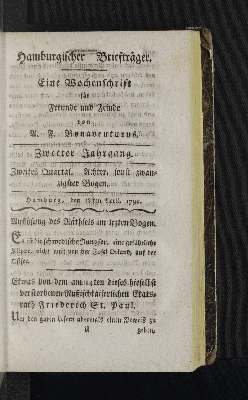 Hamburgischer Briefträger.
Eine Wochenschrift
für
Freunde und Feinde
von
A. F. Bonaventurus.
Zweiter Jahrgang.
Zweites Quartal. Achter, sonst zwan-
zigster Bogen.
Hamburg, den April.
Auflösung des Räthsels im letzten Bogen.
Es ist die schwedische Jungfer, eine gefährliche
Klippe, nicht weit von der Insel Oeland, auf der
Ostsee.
Etwas von dem am dieses hieselbst
verstorbenen Russischkaiserlichen Etats-
rath Friederich St. Paul.
Um den guten Lesern abermals einen Beweiß zu
U
geben,